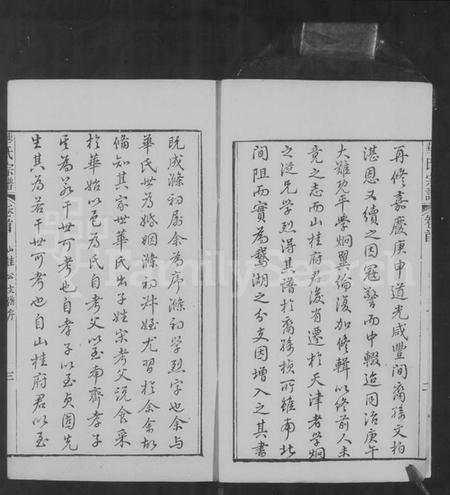 再修嘉慶庚申道光咸豐間裔孫文柏
湛恩又續之因冠警而中輟迨同治庚午
大難既平學炯翼綸復加修輯以終前人未
竟之志而山桂府君後有遷於天津者學炯
之從兄學烈得其譜於裔孫 所雖南北
間阻而實為鵝湖之分支因增入之其書
既成滌初屬余為序滌初學烈字也余與
華氏世為婚姻滌初 姪尤習於余余故
備知其家世華氏出子姓宋考父說食采
於華始以邑為氏自考父以至南齊孝子
 為若干世可考也自孝子以至貞固先
生其為若干世可考也自山桂府君以至
華氏宗譜 卷首
氏宗譜 卷首 山桂公支譜序 三
FamilySearch